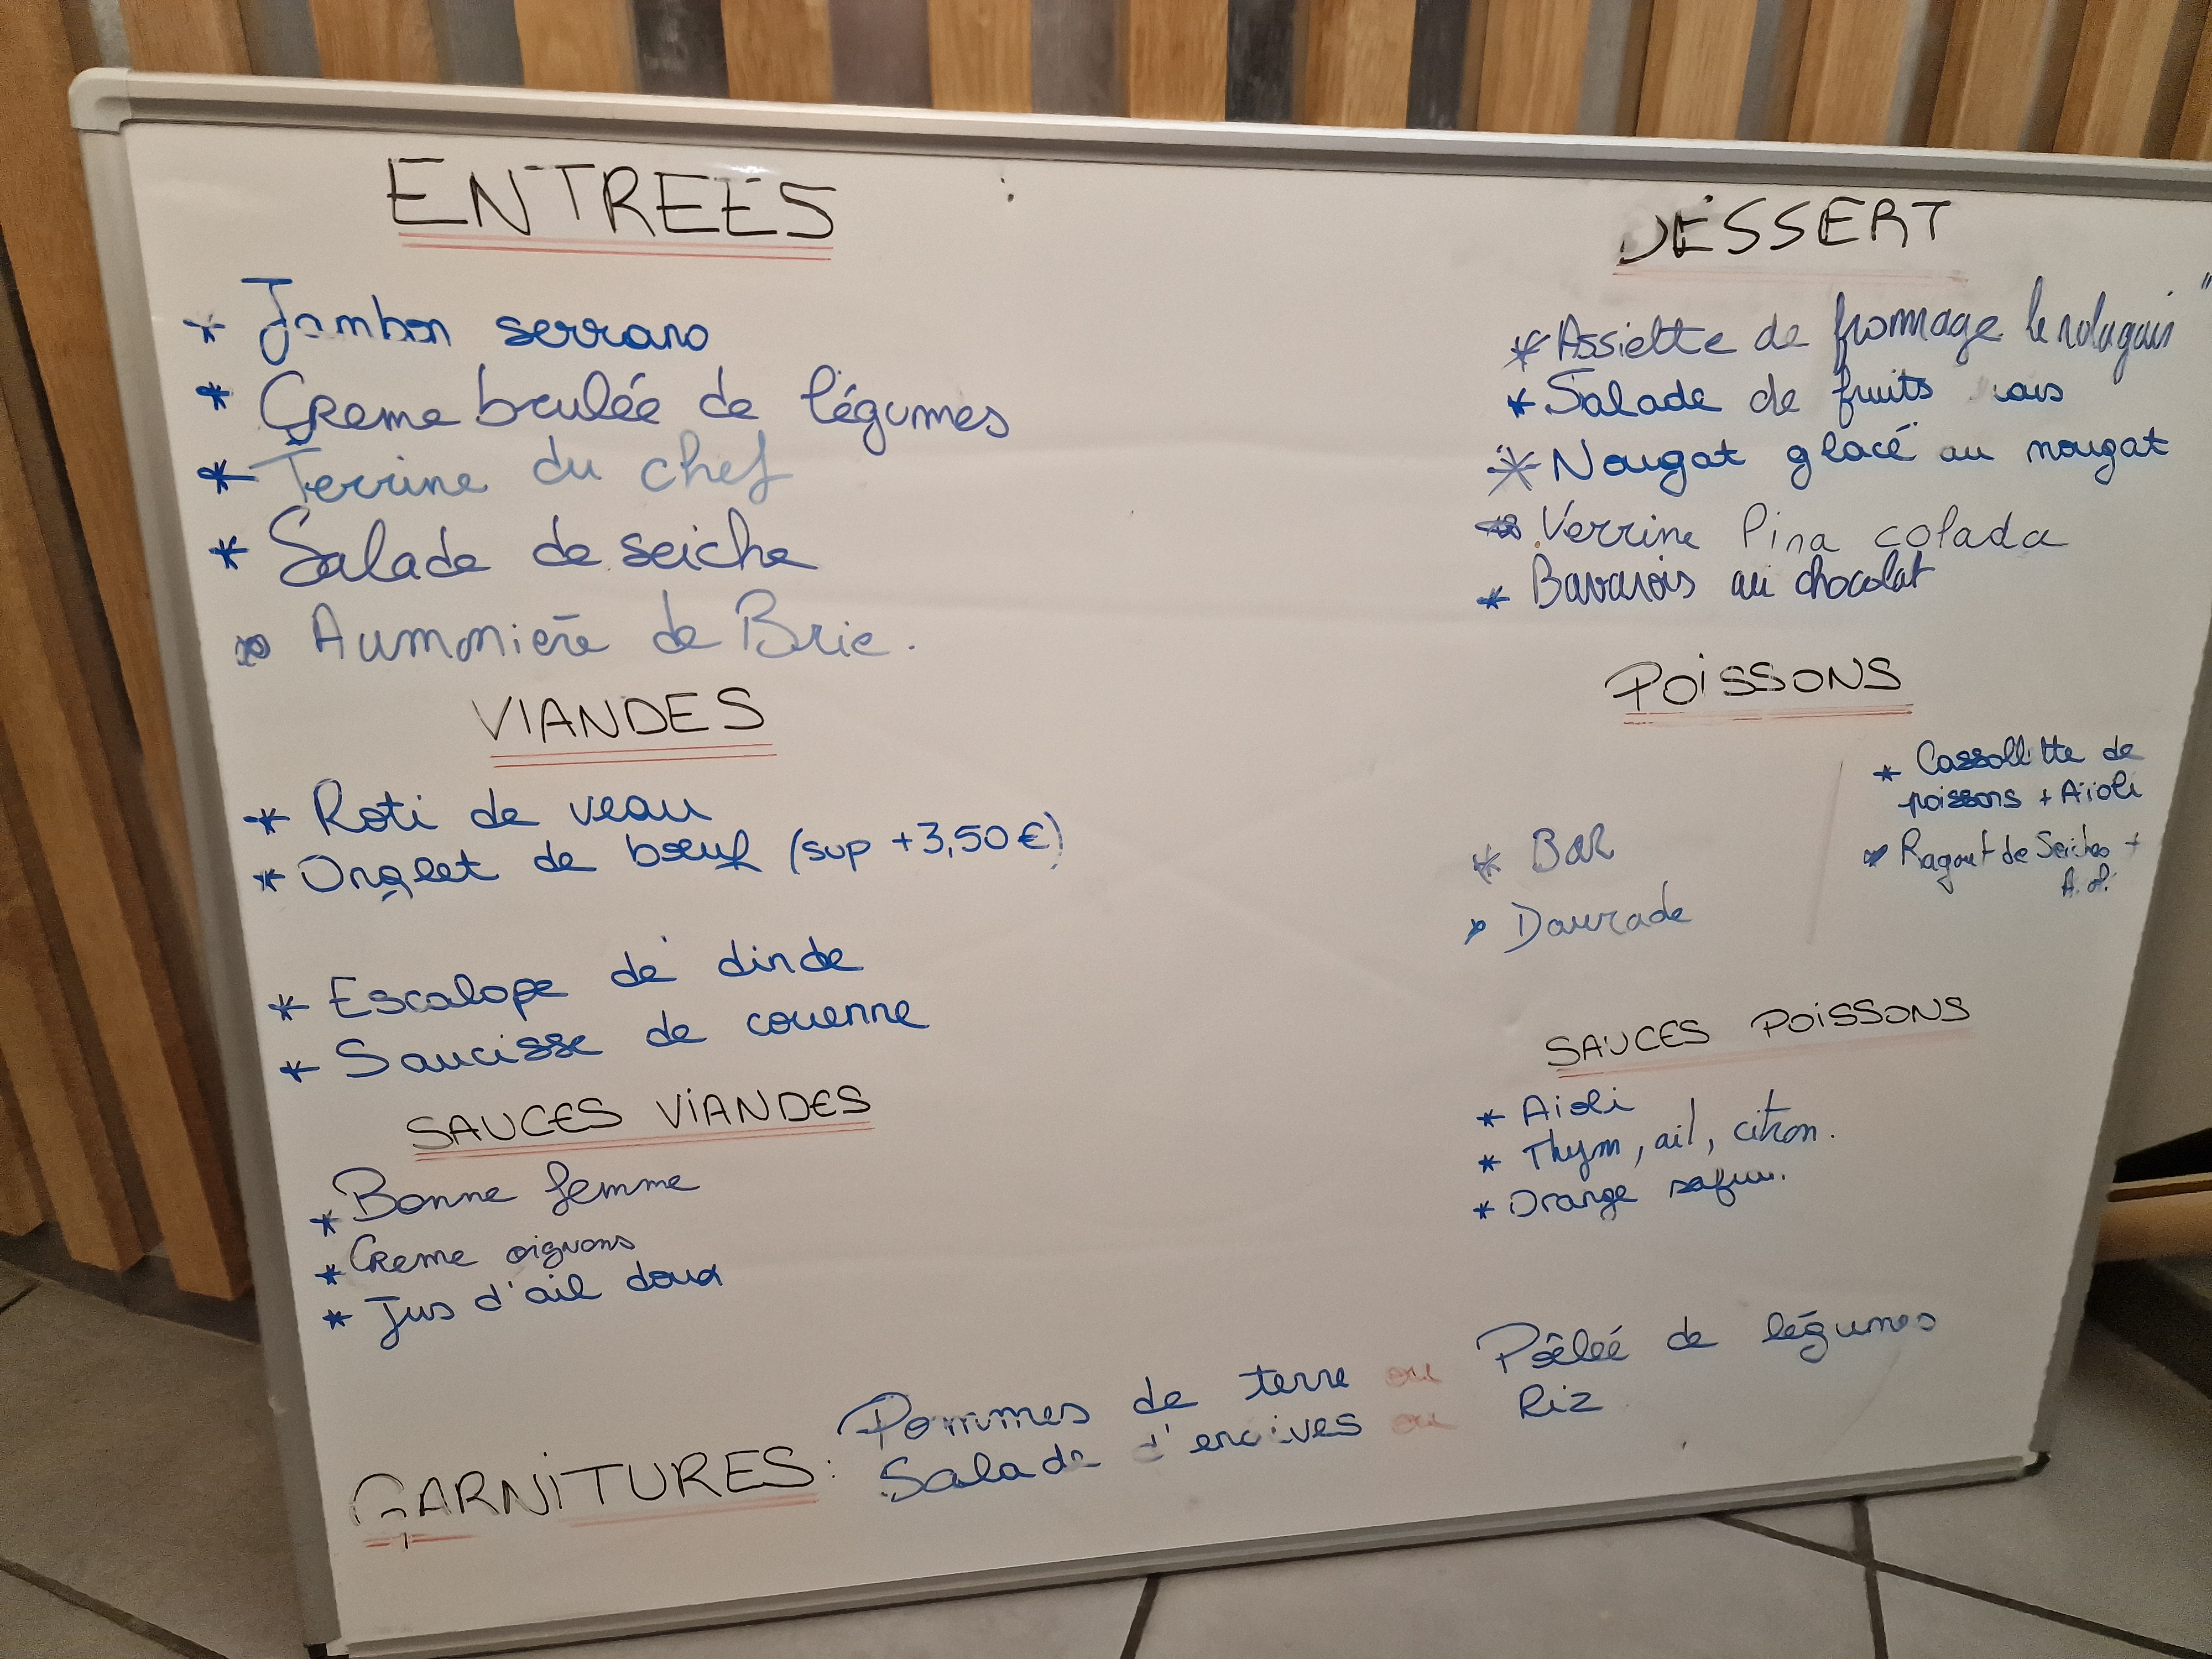 ENTREES
* Jambon serrano
* Creme brulée de légumes
* Terrine du chef
* Salade de seiche
* Aumonière de Brie.
VIANDES
* Roti de veau
* Onglet de bœuf (sup +3,50€)
* Escalope de dinde
* Saucisse de couenne
SAUCES VIANDES
* Bonne femme
* Creme oignons
* Jus d'ail doux
DESSERT
* Assiette de fromage
* Salade de fruits
* Nougat glacé au nougat
* Verrine Pina colada
* Bavarois au chocolat
POISSONS
* Bar
* Daurade
* Cassollette de
poissons + Aïoli
* Ragout de Seiches +
SAUCES POISSONS
* Aioli
* Thym, ail, citron.
* Orange
GARNITURES:
Pommes de terre ou Pôêlée de légumes
Salade d'endives ou Riz